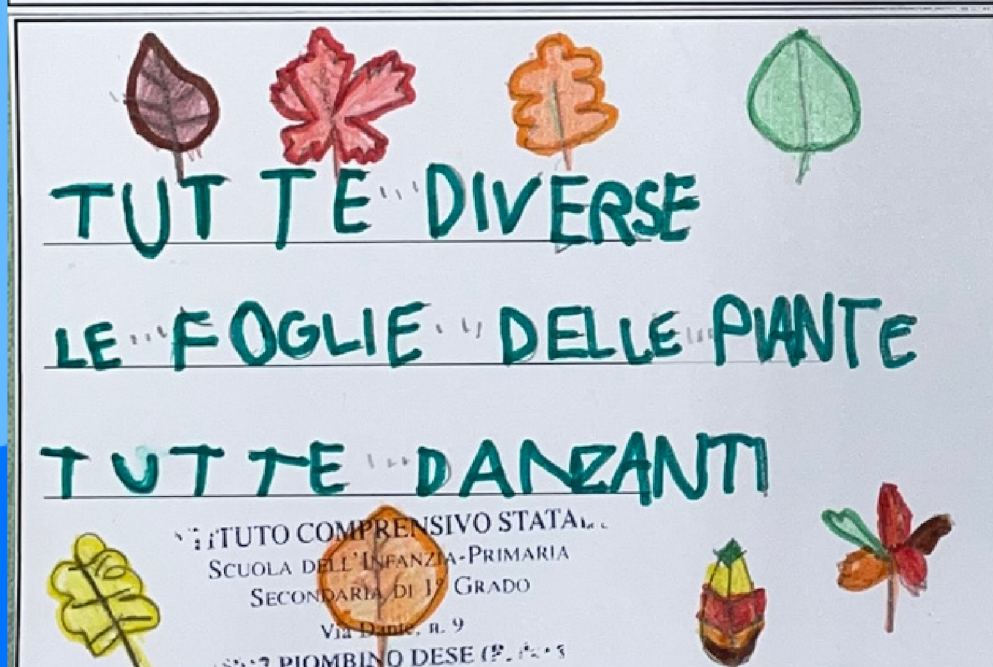 TUTTE DIVERSE
LE FOGLIE DELLE PIANTE
TUTTE DANZANTI
COMPRENSIVO
SCUOLA DELL'INFANZIA-PRIMARIA
SECONDARIA DI 1° GRADO
Via Dante, n. 9
PIOMBINO DESE